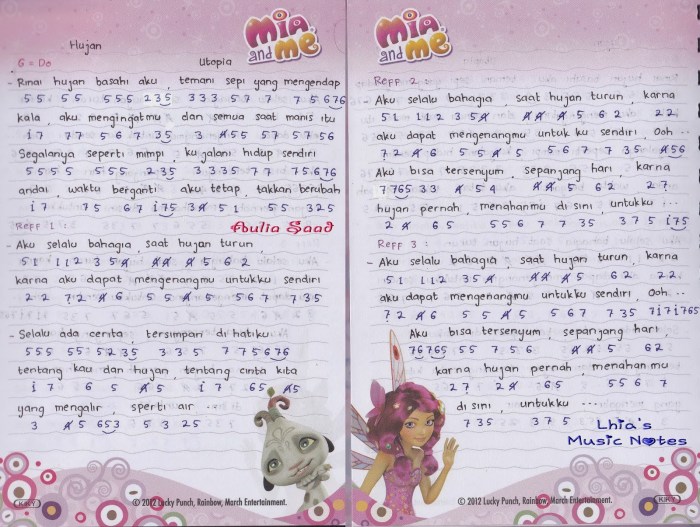 Mia and me
Hujan
G = Do Utopia
- Rinai hujan basahi aku, temani sepi yang mengendap
5 5 5 5 5 5 5 2 3 5 3 3 3 5 7 7 7 5 6 7 6
kala, aku mengingatmu dan semua saat manis itu
i 7 7 7 5 6 7 3 5 3 4 5 5 5 7 5 7 5 6
Segalanya seperti mimpi, ku jalani hidup sendiri
5 5 5 5 5 5 5 2 3 5 3 3 3 5 7 7 7 5 6 7 6
andai, waktu berganti aku tetap, takkan berubah
i 7 7 5 6 7 i 7 5 3 4 5 1 5 5 3 2 5
Reff 1 : Aulia Saad
- Aku selalu bahagia, saat hujan turun,
5 1 1 1 2 3 5 4 4 4 4 5 6 2
karna aku dapat mengenangmu untukku sendiri
2 2 7 2 4 6 5 5 4 5 5 6 7 7 3 5
- Selalu ada cerita, tersimpan di hatiku
5 5 5 5 5 5 2 3 5 3 3 5 7 7 5 6 7 6
tentang kau dan hujan, tentang cinta kita
i 7 6 5 4 5 i 7 6 5 4 5
yang mengalir, sperti air ...
3 4 5 6 5 3 5 3 2 5
KIKY © 2012 Lucky Punch, Rainbow, March Entertainment.
Mia and me
Reff 2 :
- Aku selalu bahagia, saat hujan turun, karna
5 1 1 1 2 3 5 4 4 4 4 5 6 2 2 2
aku dapat mengenangmu untuk ku sendiri, Ooh ..
7 2 4 6 5 5 4 5 5 6 7 7 3 5 4 5 6
Aku bisa tersenyum, sepanjang hari, karna
7 7 6 5 3 3 4 5 4 4 4 5 6 2 2 7
hujan pernah, menahanmu di sini, untukku ...
2 4 6 5 5 5 6 7 7 3 5 3 7 5 i 7 5
Reff 3 :
- Aku selalu bahagia, saat hujan turun, karna
5 1 1 1 2 3 5 4 4 4 4 5 6 2 2 2
aku dapat mengenangmu untuk ku sendiri, Ooh ..
7 2 4 6 5 5 4 5 5 6 7 7 3 5 7 i 7 i 7 6 5
Aku bisa tersenyum, sepanjang hari,
7 6 7 6 5 5 5 7 5 6 4 4 5 6 2
karna hujan pernah, menahanmu
2 7 2 4 6 5 5 5 6 7
di sini, untukku ...
7 3 5 3 7 5
Lhia's
Music Notes
© 2012 Lucky Punch, Rainbow, March Entertainment. KIKY